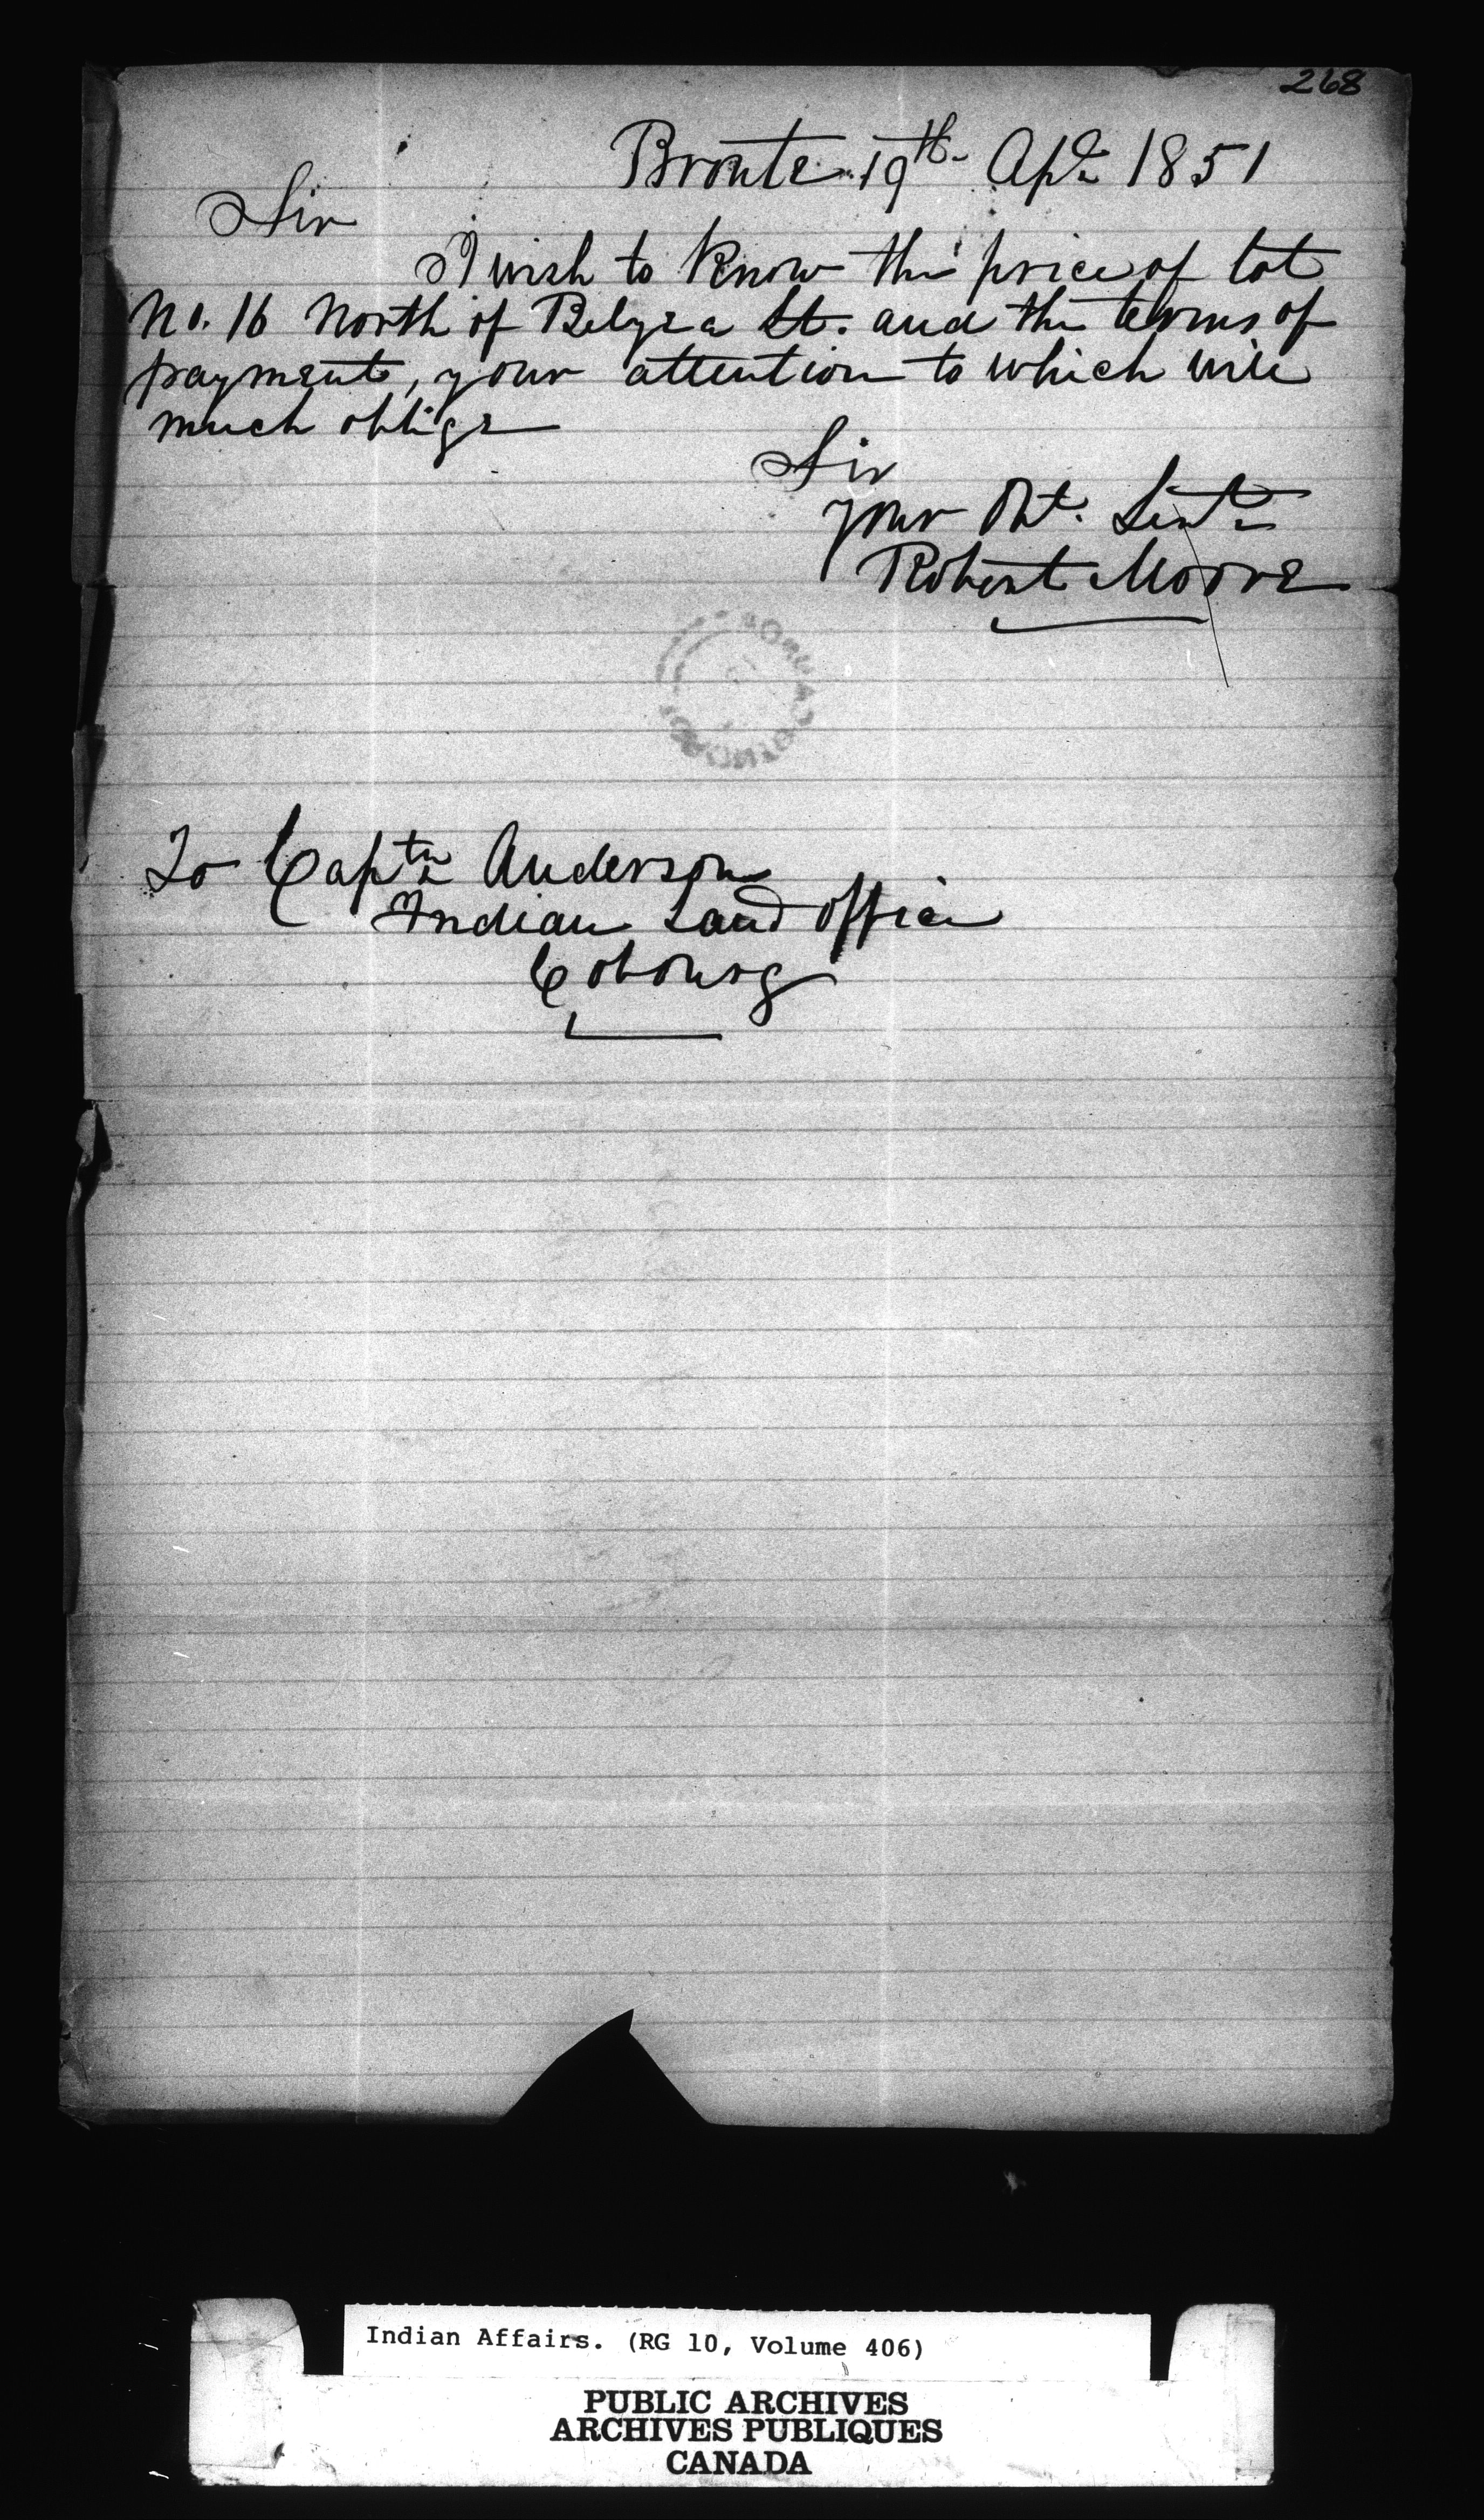 268
Bronte 19th Apl 1851
Sir
I wish to know the price of lot
No. 16 North of Belyea St. and the terms of
payment, your attention to which will
much oblige
Sir
your Obt. Servt
Robert Moore
To Captn Anderson
Indian Land Office
Cobourg
Indian Affairs. (RG 10, Volume 406)
PUBLIC ARCHIVES
ARCHIVES PUBLIQUES
CANADA